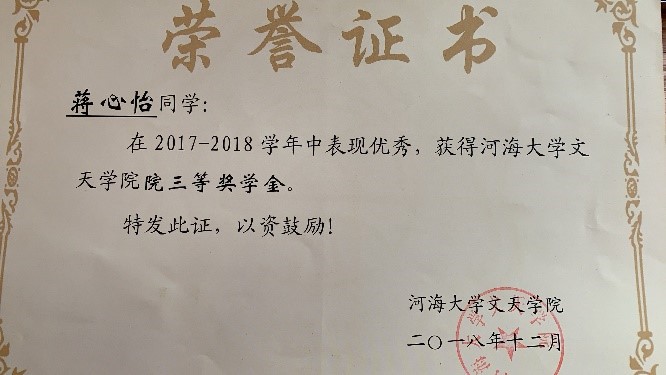 荣誉证书
蒋心怡同学：
在2017-2018学年中表现优秀，获得河海大学文
天学院院三等奖学金。
特发此证，以资鼓励！
河海大学文天学院
二〇一八年十二月